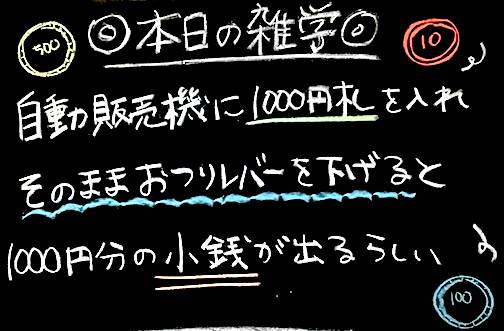 ◎本日の雑学◎
500
10
自動販売機に1000円札を入れ
そのままおつりレバーを下げると
1000円分の小銭が出るらしい
100